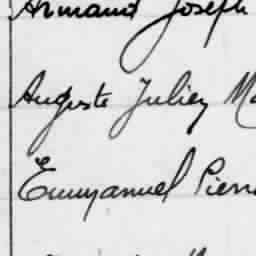 Armand Joseph
Auguste Julien
Emmanuel